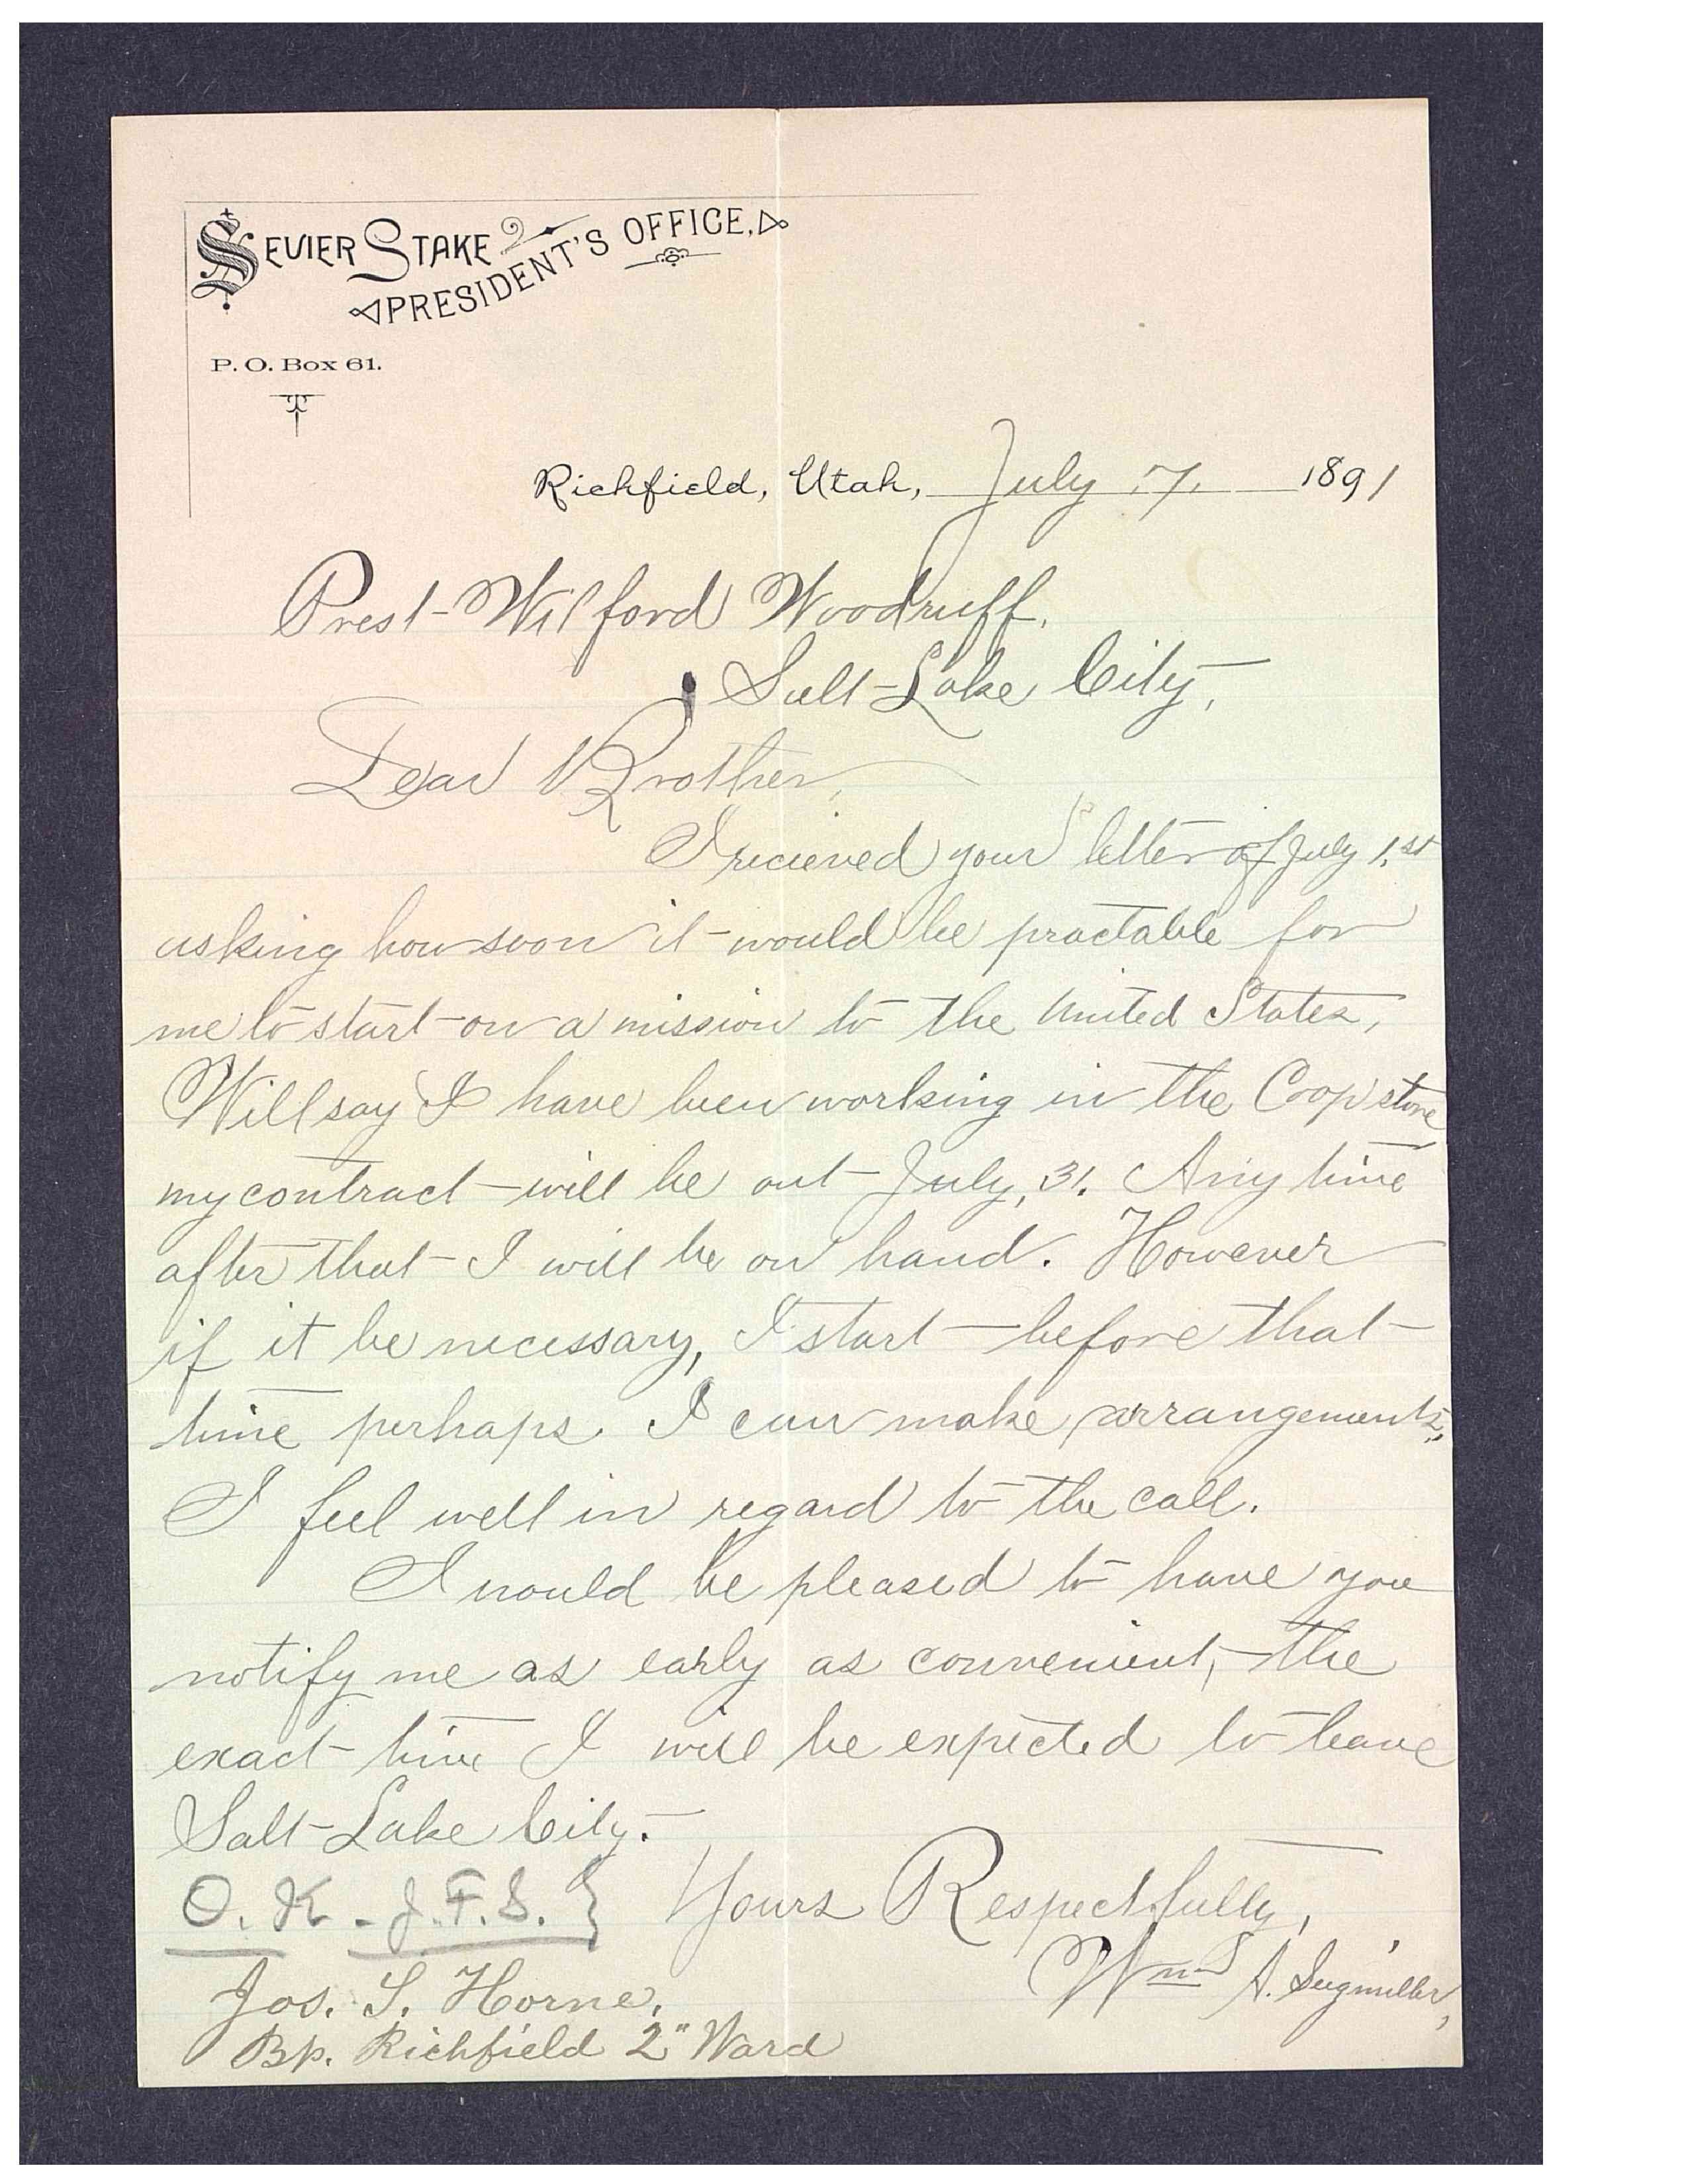 SEVIER STAKE
PRESIDENT'S OFFICE.
P. O. Box 61.
Richfield, Utah, July 7, 1891
Prest Wilford Woodruff,
Salt Lake City,
Dear Brother,
I recieved your letter of July 1.st
asking how soon it would be practable for
me to start on a mission to the United States,
Will say I have been working in the Coop store
my contract will be out July, 31. Any time
after that I will be on hand. However
if it be necessary, I start before that
time perhaps I can make arrangements,
I feel well in regard to the call.
I would be pleased to have you
notify me as early as convenient, the
exact time I will be expected to leave
Salt Lake City.
O. K. - J. F. S. } Yours Respectfully,
Wm A. Segmiller,
Jos. S. Horne,
Bp. Richfield 2" Ward